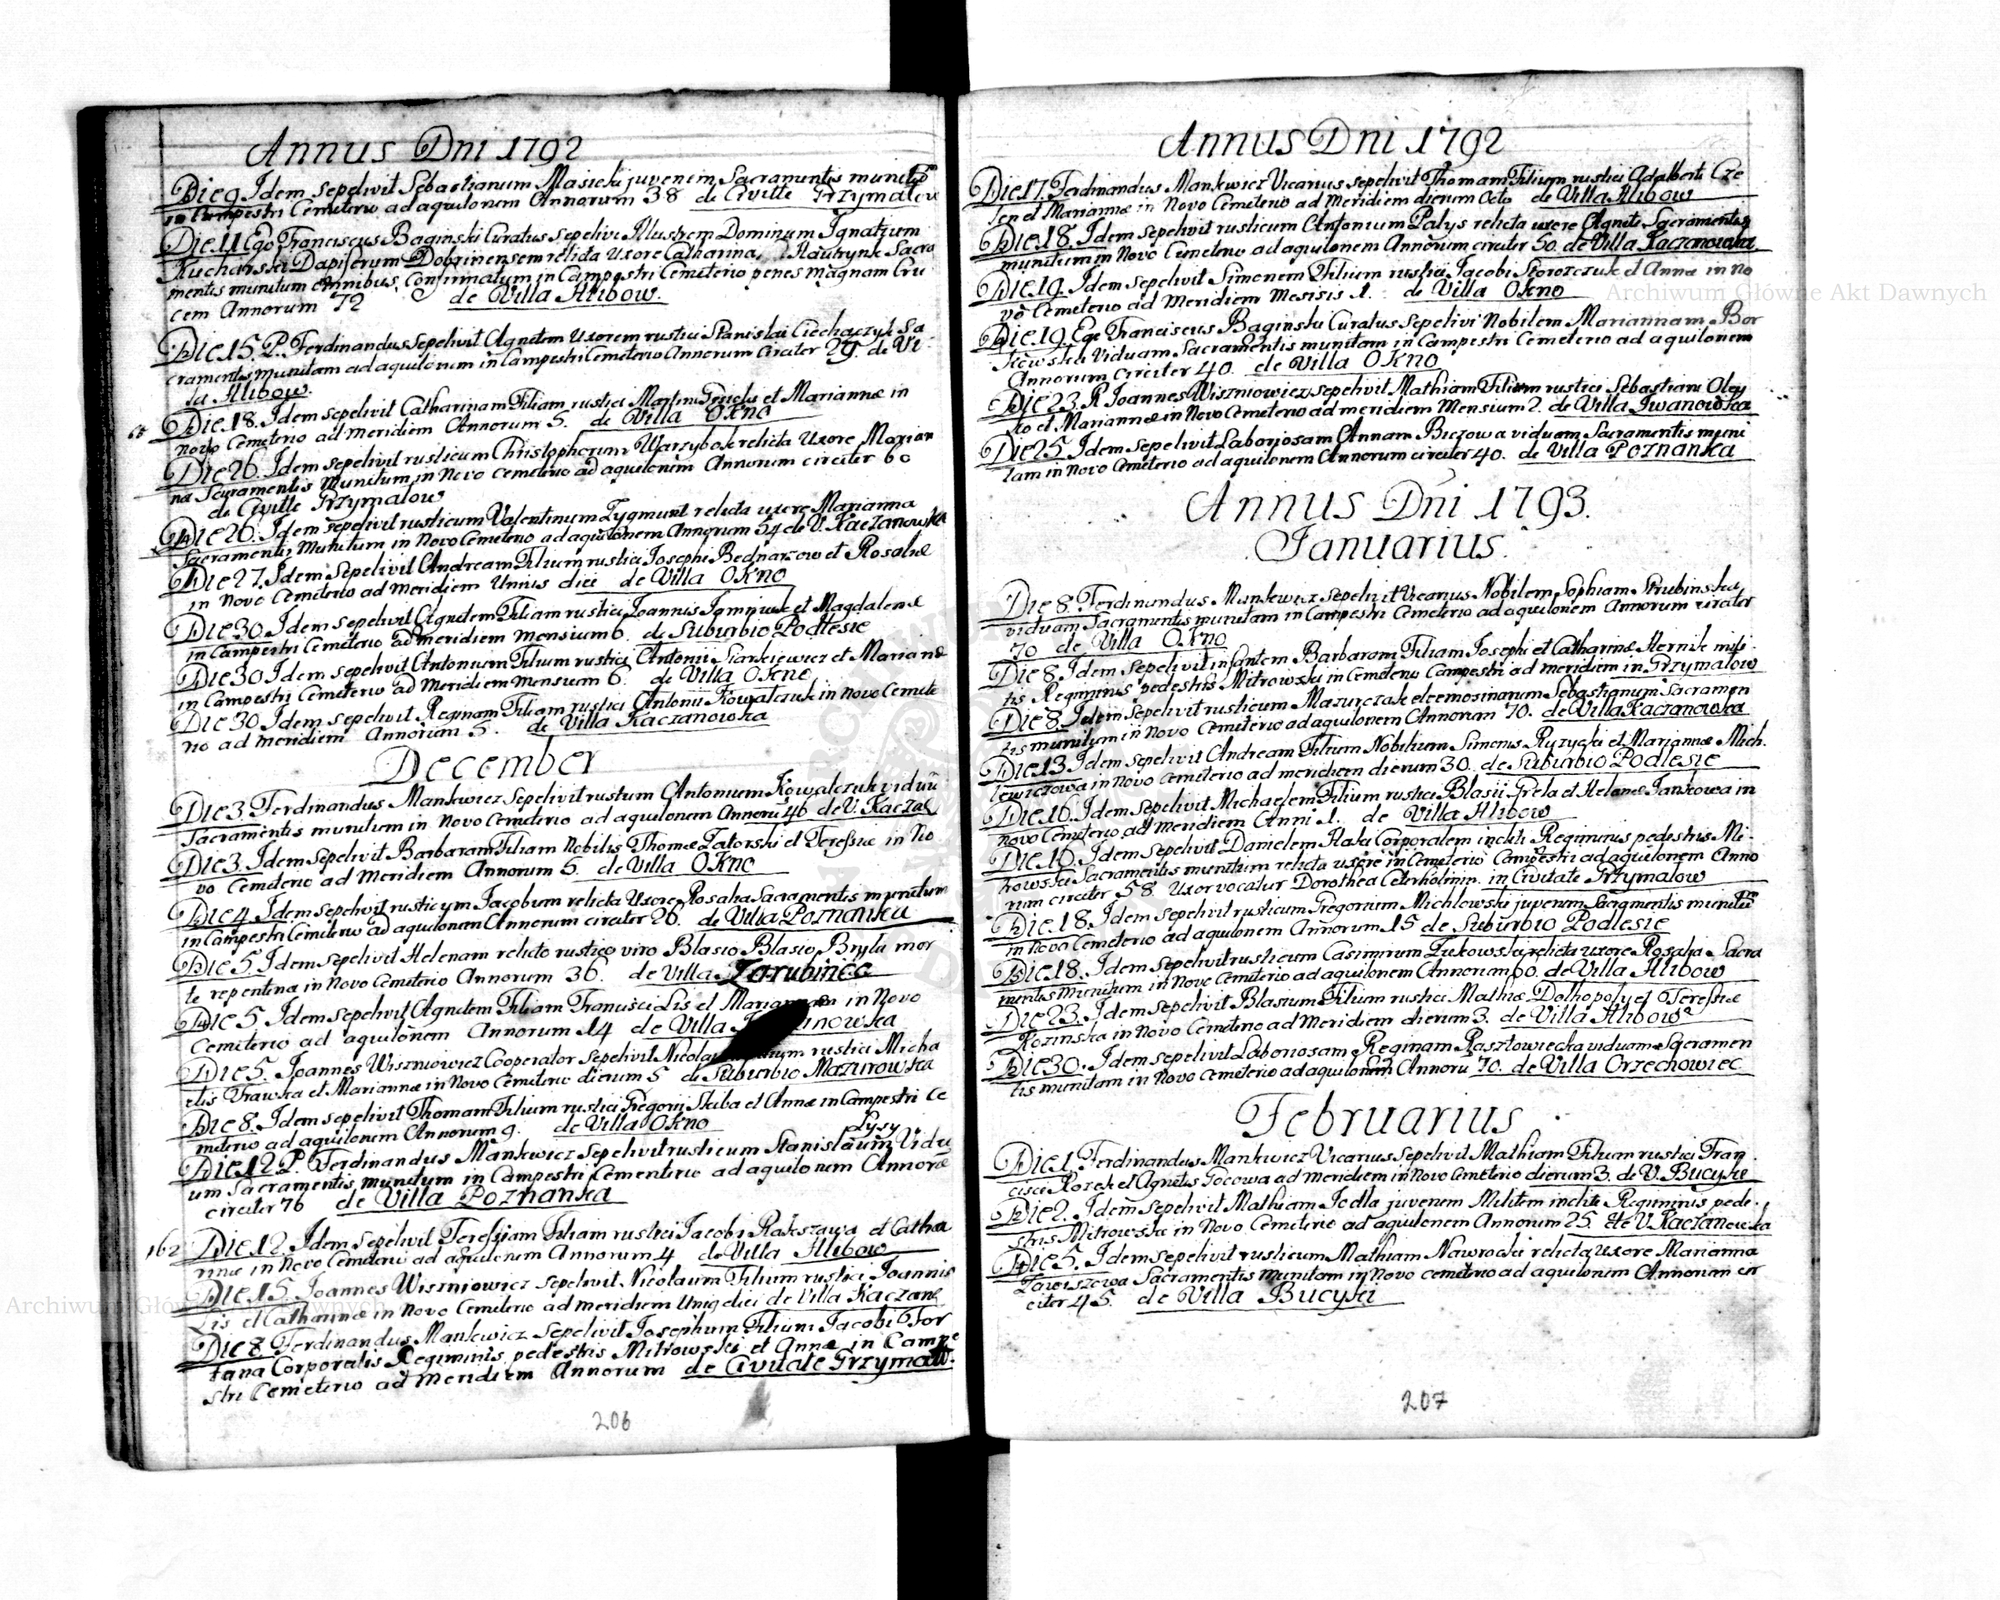 Annus Dni 1792
Die 9. Idem sepelivit Sebastianum Masicki juvenem Sacramentis munitū
in Campestri Cemeterio ad aquilonem Annorum 38 de Civitte Grzymalow
Die 11 Ego Franciscus Baginski Curatus sepelivi Illustrem Dominum Ignatium
Kucharski Dapiferum Dobrinensem relicta Uxore Catharina, Sacra
mentis munitum omnibus, Confirmatum in Campestri Cemeterio penes magnam Cru
cem Annorum 72 de Villa Hlibow.
Die 15. P. Ferdinandus Sepelivit Agnetem Uxorem rustici Stanislai Sa
cramentis munitam ad aquilonem in Campestri Cemeterio Annorum Circiter 29. de Vi
la Hlibow.
Die 18. Idem sepelivit Catharinam Filiam rustici Martini et Mariannæ in
novo Cemeterio ad meridiem Annorum 5. de Villa Okno
Die 26. Idem sepelivit rusticum Christophorum Warzybok relicta Uxore Marian
na Sacramentis Munitum in Novo Cemeterio ad aquilonem Annorum circiter 60
de Civitte Grzymalow
Die 26. Idem sepelivit rusticum Valentinum Zygmunt relicta uxore Marianna
Sacramentis Munitum in Novo Cemeterio ad aquilonem Annorum 54 de V. Kaczanowka
Die 27. Idem Sepelivit Andream Filium rustici Josephi Bednarzow et Rosaliæ
in Novo Cemeterio ad Meridiem Unius diei de Villa Okno
Die 30. Idem sepelivit Agnetem Filiam rustici Joannis et Magdalenæ
in Campestri Cemeterio ad meridiem mensium 6. de Suburbio Podlesie
Die 30 Idem sepelivit Antonium Filium rustici Antonii Siankiewicz et Mariañæ
in Campestri Cemeterio ad Meridiem mensium 6. de Villa Okno
Die 30. Idem sepelivit Reginam Filiam rustici Antonii Kowalczuk in novo Cemete
rio ad meridiem Annorum 5. de Villa Kaczanowka
December
Die 3. Ferdinandus Mankwicz Sepelivit rustum Antonium Kowalczuk viduū
Sacramentis munitum in Novo Cemeterio ad aquilonem Annorū 46 de V. Kaczan
Die 3. Idem Sepelivit Barbaram Filiam Nobilis Thomæ Zatorski et Teressiæ in No
vo Cemeterio ad Meridiem Annorum 5. de Villa Okno
Die 4. Idem sepelivit rusticum Jacobum relicta Uxore Rosalia Sacramentis munitum
in Campestri Cemeterio ad aquilonem Annorum circiter 26. de Villa Poznanka
Die 5. Idem sepelivit Helenam relicto rustico viro Blasio Blasio Bryla mor
te repentina in Novo Cemeterio Annorum 36. de Villa Zarubince
Die 5. Idem sepelivit Agnetem Filiam Francisci Lis et Mariannæ in Novo
Cemeterio ad aquilonem Annorum 14 de Villa
Die 5. Joannes Wiszniowicz Cooperator sepelivit Nicolaum Filium rustici Micha
elis Trawka et Mariannæ in Novo Cemeterio dierum 5 de Suburbio Mazurowka
Die 8. Idem sepelivit Thomam Filium rustici Gregorii Skiba et Annæ in Campestri Ce
meterio ad aquilonem Annorum 9. de Villa Okno
Lysy
Die 12 P. Ferdinandus Mankwicz Sepelivit rusticum Stanislaum Vidu
um Sacramentis munitum in Campestri Cementerio ad aquilonem Annorū
circiter 76 de Villa Poznanka
162 Die 12. Idem sepelivit Teressiam Filiam rustici Jacobi et Catha
rinæ in Novo Cemeterio ad aquilonem Annorum 4 de Villa Hlibow
Die 15. Joannes Wiszniowicz sepelivit Nicolaum Filium rustici Joannis
Lis et Catharinæ in Novo Cemeterio ad meridiem Unius diei de Villa Kaczan
Die 8. Ferdinandus Mankwicz Sepelivit Josephum Filium Jacobi For
tana Corporalis Regiminis pedestris Mitrowski et Annæ in Campe
stri Cemeterio ad Meridiem Annorum de Civitate Grzymalow.
206
Annus Dni 1792
Die 17. Ferdinandus Mankwicz Vicarius sepelivit Thomam Filium rustici Adalberti Cze
len et Mariannæ in Novo Cemeterio ad Meridiem dierum Octo de Villa Hlibow
Die 18. Idem sepelivit rusticum Antonium Palys relicta uxore Agnete Sacramentis
munitum in Novo Cemeterio ad aquilonem Annorum circiter 50. de Villa Kaczanowka
Die 19. Idem sepelivit Simonem Filium rustici Jacobi Storozczuk et Annæ in no
vo Cemeterio ad Meridiem Mesisis 1. de Villa Okno
Die 19. Ego Franciscus Baginski Curatus Sepelivi Nobilem Mariannam Bor
kowska Viduam Sacramentis munitam in Campestri Cemeterio ad aquilonem
Annorum circiter 40. de Villa Okno
Die 23. R Joannes Wiszniowicz sepelivit Mathiam Filium rustici Sebastiani Oley
ko et Mariannæ in Novo Cemeterio ad meridiem Mensium 2. de Villa Iwanowka
Die 25 Idem sepelivit Laboriosam Annam Biczowa viduam Sacramentis muni
tam in Novo Cemeterio ad aquilonem Annorum circiter 40. de Villa Poznanka
Annus Dni 1793.
Ianuarius.
Die 8. Ferdinandus Mankwicz sepelivit Vicarius Nobilem Sophiam Strubinska
viduam Sacramentis munitam in Campestri Cemeterio ad aquilonem Annorum circiter
70 de Villa Okno
Die 8. Idem sepelivit infantem Barbaram Filiam Josephi et Catharinæ Hernik mili
tis Regiminis pedestris Mitrowski in Cemeterio Campestri ad meridiem in Grzymalow
Die 8. Idem sepelivit rusticum Mazurczak eleemosinarum Sebastianum Sacramen
tis munitum in Novo Cemeterio ad aquilonem Annorum 70. de Villa Kaczanowka
Die 13 Idem sepelivit Andream Filium Nobilium Simonis Ryzycki et Mariannæ Mich.
lewiczowa in Novo Cemeterio ad meridiem dierum 30. de Suburbio Podlesie
Die 16. Idem Sepelivit Michaelem Filium rustici Blasii Grela et Helenæ Jankowa in
novo Cemeterio ad Meridiem Anni 1. de Villa Hlibow
Die 16. Idem Sepelivit Danielem Corporalem incliti Regiminis pedestris Mi-
trowski Sacramentis munitum relicta uxore in Cemeterio Campestri ad aquilonem Anno
rum circiter 58 Uxor vocatur Dorothea in Civitate Grzymalow
Die 18. Idem Sepelivit rusticum Gregorium Michlowski juvenem Sacramentis munitū
in Novo Cemeterio ad aquilonem Annorum 15 de Suburbio Podlesie
Die 18. Idem Sepelivit rusticum Casimirum Zukowski relicta uxore Rosalia Sacra
mentis munitum in Novo Cemeterio ad aquilonem Annorum 60. de Villa Hlibow
Die 23. Idem sepelivit Blasium Filium rustici Mathiæ Dolhopoly et Teressiæ
Kozinska in Novo Cemeterio ad Meridiem dierum 3. de Villa Hlibow
Die 30. Idem sepelivit Laboriosam Reginam Rasztowiecka viduam Sacramen
tis munitam in Novo Cemeterio ad aquilonem Annorū 70. de Villa Orzechowiec
Februarius
Die 1. Ferdinandus Mankwicz Vicarius Sepelivit Mathiam Filium rustici Fran
cisci Rozek et Agnetis Gocowa ad meridiem in Novo Cemeterio dierum 3. de V. Bucyki
Die 2. Idem Sepelivit Mathiam Jodla juvenem Militem incliti Regiminis pede-
stris Mitrowski in Novo Cemeterio ad aquilonem Annorum 25. de V. Kaczanowka
Die 5. Idem sepelivit rusticum Mathiam Nawrocki relicta Uxore Marianna
Sacramentis munitam in Novo Cemeterio ad aquilonem Annorum cir
citer 45. de Villa Bucyki
207
Archiwum Główne Akt Dawnych
Archiwum Główne Akt Dawnych